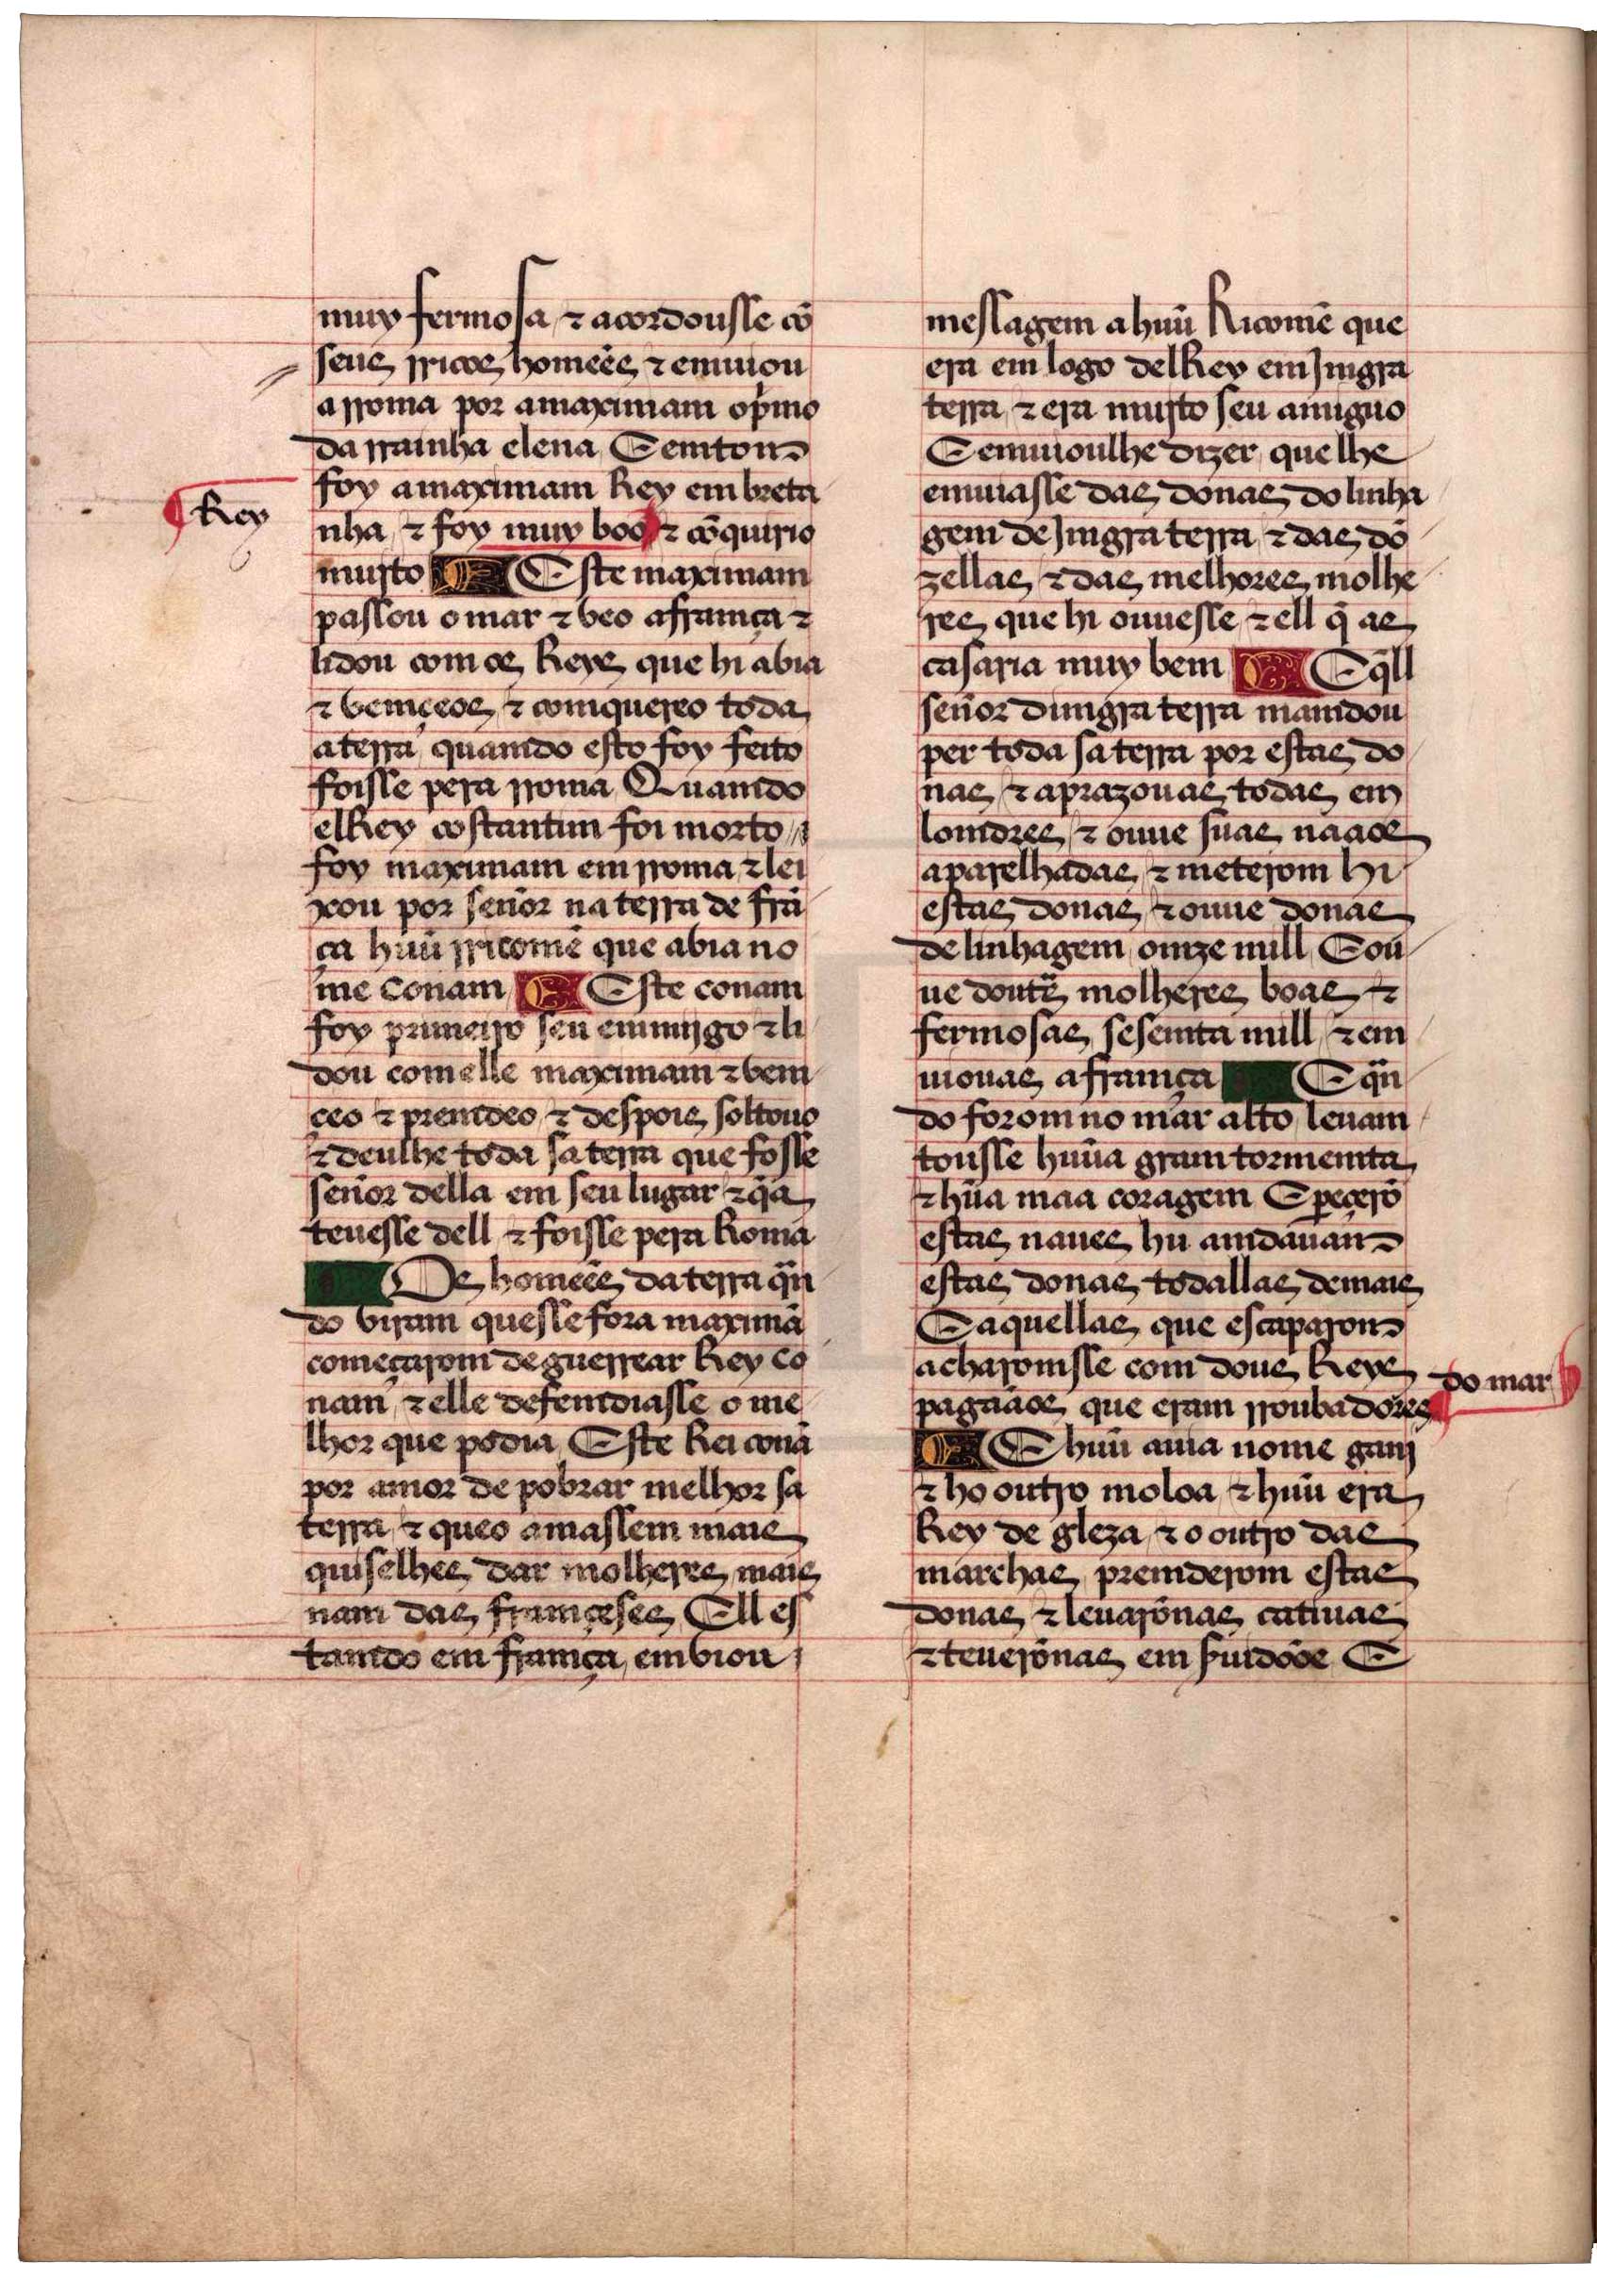 muy fermosa ⁊ acordousse cõ
seus rricos homeẽs ⁊ emuiou
a rroma por a maximam o pͥmo
da rrainha elena E emtom
foy a maximam Rey em breta
Rey
nha ⁊ foy muy boo ⁊ cõquirio
muito Este maximam
passou o mar ⁊ veo a framça ⁊
lidou com os Reys que hi abia
⁊ vemçeos ⁊ comquereo toda
a terra quamdo esto foy feito
foisse pera rroma Quamdo
elRey costantim foi morto
foy maximam em rroma ⁊ lei
xou por señor na terra de frã
ça huũ rricomẽ que abia no
me Conam Este conam
foy primeiro seu emmijgo ⁊ li
dou com elle maximam ⁊ vem
ceo ⁊ premdeo ⁊ despois soltouo
⁊ deulhe toda sa terra que fosse
señor della em seu lugar ⁊ q̃a
teuesse dell ⁊ foisse pera Roma
Os homeẽs da terra qñ
do viram quesse fora maximã
começarom de guerrear Rey Co
nam ⁊ elle defemdiasse o me
lhor que podia Este Rei conã
por amor de pobrar melhor sa
terra ⁊ queo amassem mais
quiselhes dar molheres mais
nam das framçeses Ell es
tamdo em framça embiou
messagem a huũ Ricomẽ que
era em logo delRey em Jmgra
terra ⁊ era muito seu amiguo
E emuioulhe dizer que lhe
emuiasse das donas do linha
gem de Jmgra terra ⁊ das dõ
zellas ⁊ das melhores molhe
res que hi ouuesse ⁊ ell q̃ as
casaria muy bem E q̃ll
señor dimgra terra mamdou
per toda sa terra por estas do
nas ⁊ aprazouas todas em
lomdres ⁊ ouue suas naaos
aparelhadas ⁊ meterom hi
estas donas ⁊ ouue donas
de linhagem omze mill E ou
ue doutͣs molheres boas ⁊
fermosas sesemta mill ⁊ em
uiouas a framça E qñ
do forom no mar alto leuam
tousse huũa gram tormemta
⁊ hũa maa coragem E pereçerõ
estas naues hu amdauam
estas donas todallas demais
E aquellas que escaparom
acharomsse com dous Reys
do mar
pagaãos que eram rroubadores
E huũ auia nome ganj
⁊ ho outro moloa ⁊ huũ era
Rey de gleza ⁊ o outro das
marchas premderom estas
donas ⁊ leuarõnas catiuas
⁊ teuerõnas em seruidoõe E